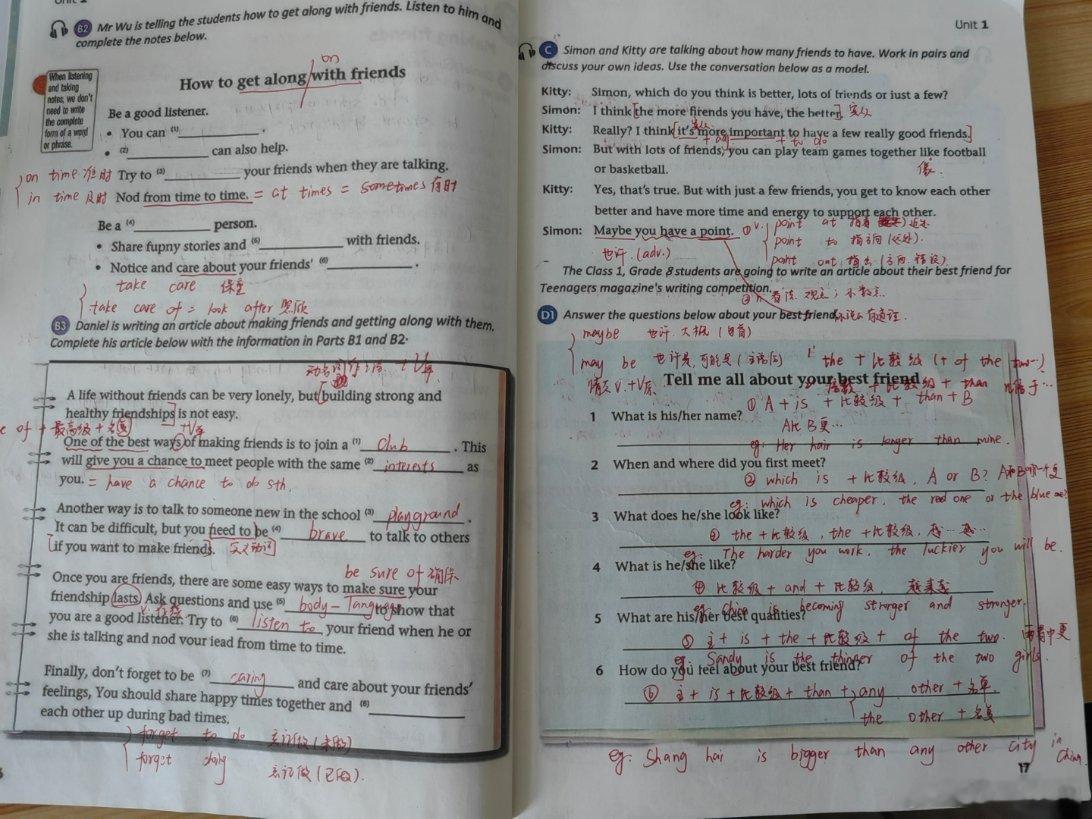 Unit 1
B2 Mr Wu is telling the students how to get along with friends. Listen to him and
complete the notes below.
When listening
and taking
notes, we don't
need to write
the complete
form of a word
or phrase.
on
How to get along/with friends
Be a good listener.
• You can (1) ____________ .
• (2) ____________ can also help.
on time 准时 Try to (3) ____________ your friends when they are talking.
in time 及时 Nod from time to time. = at times = sometimes 有时
Be a (4) ____________ person.
• Share funny stories and (5) ____________ with friends.
• Notice and care about your friends' (6) ____________ .
take care 保重
take care of = look after 照顾
B3 Daniel is writing an article about making friends and getting along with them.
Complete his article below with the information in Parts B1 and B2.
A life without friends can be very lonely, but [building strong and
healthy friendships] is not easy.
One of the best ways of making friends is to join a (1) club . This
will give you a chance to meet people with the same (2) interests as
you. = have a chance to do sth.
Another way is to talk to someone new in the school (3) playground .
It can be difficult, but you need to be (4) brave to talk to others
[if you want to make friends].
be sure of 确保
Once you are friends, there are some easy ways to make sure your
friendship lasts. Ask questions and use (5) body-language to show that
you are a good listener. Try to (6) listen to your friend when he or
she is talking and nod your head from time to time.
Finally, don't forget to be (7) caring and care about your friends'
feelings, You should share happy times together and (8) ____________
each other up during bad times.
forget to do 忘记做(未做)
forget doing 忘记做(已做).
Unit 1
C Simon and Kitty are talking about how many friends to have. Work in pairs and
discuss your own ideas. Use the conversation below as a model.
Kitty: Simon, which do you think is better, lots of friends or just a few?
Simon: I think [the more friends you have, the better]. 宾从
Kitty: Really? I think [it's more important to have a few really good friends.]
+ adj + to do
Simon: But with lots of friends, you can play team games together like football
or basketball. 像.
Kitty: Yes, that's true. But with just a few friends, you get to know each other
better and have more time and energy to support each other.
Simon: Maybe you have a point. ① v.
point at 指着
point to 指向(远处).
point out 指出
也许. (adv.)
The Class 1, Grade 8 students are going to write an article about their best friend for
Teenagers magazine's writing competition.
D1 Answer the questions below about your best friend.
maybe 也许. 大概 (句首)
may be 也许是, 可能是
情态 v. + V原
the + 比较级 + of the two
倍数 + 比较级 + than
Tell me all about your best friend
① A + is + 比较级 + than + B
A比B更…
1 What is his/her name?
eg: Her hair is longer than mine.
2 When and where did you first meet?
② which is + 比较级, A or B?
eg: which is cheaper, the red one or the blue one?
3 What does he/she look like?
③ the + 比较级, the + 比较级 越…越…
eg: The harder you work, the luckier you will be.
4 What is he/she like?
④ 比较级 + and + 比较级 越来越
eg: China is becoming stronger and stronger.
5 What are his/her best qualities?
⑤ 主 + is + the + 比较级 + of the two. 两者中更
eg: Sandy is the thinner of the two girls.
6 How do you feel about your best friend?
⑥ 主 + is + 比较级 + than + any other + 名单.
the other + 名复
eg: Shang hai is bigger than any other city in China.
17